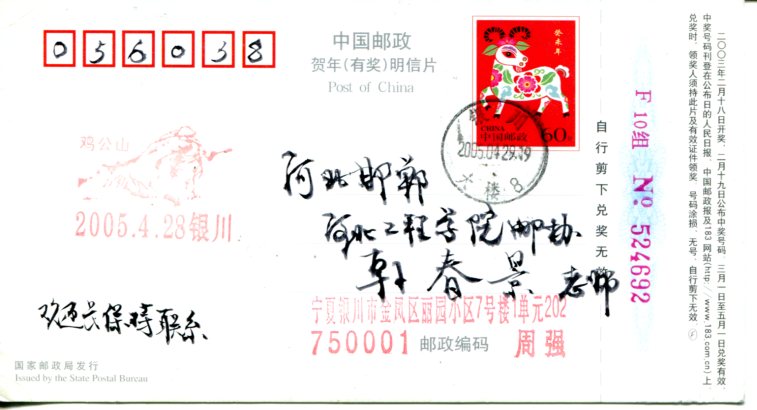 056038
中国邮政
贺年(有奖)明信片
Post of China
癸未年
CHINA
中国邮政
60分
银川
2005.04.29.19
楼 8
鸡公山
2005.4.28银川
河北邯郸
河北工程学院邮协
韩春景 老师
宁夏银川市金凤区丽园小区7号楼1单元202
750001 邮政编码 周强
欢迎长保持联系
国家邮政局发行
Issued by the State Postal Bureau
自行剪下兑奖无效
F 10组 No 524692
二〇〇三年二月十八日开奖，二月十九日公布中奖号码，三月一日至五月一日兑奖有效
中奖号码刊登在公布日的人民日报、中国邮政报及183网站(http://www.183.com.cn)上
兑奖时，领奖人须持此片及有效证件领奖，号码涂损、无号、自行剪下无效